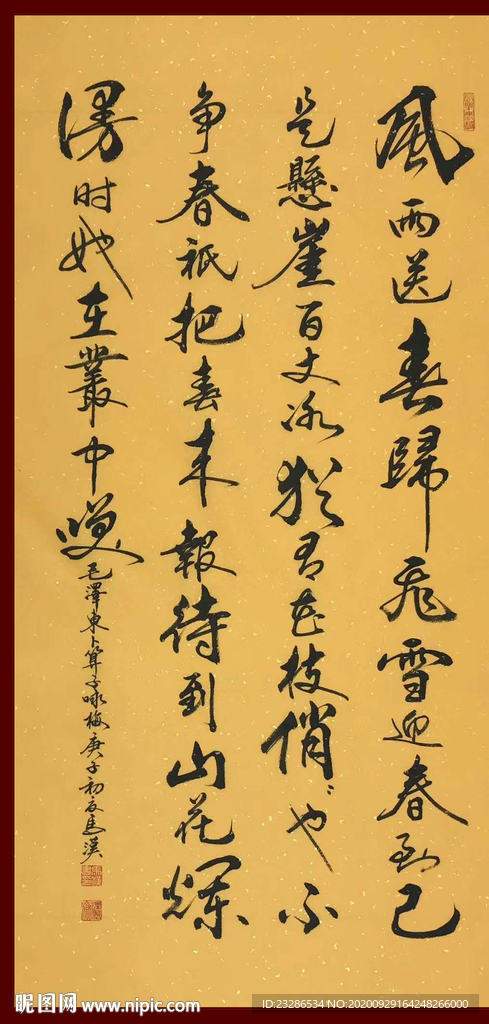 風雨送春歸飛雪迎春到已
是懸崖百丈冰猶有花枝俏〻也不
争春祇把春来報待到山花爛
漫时她在叢中咲
毛澤東卜算子咏梅庚子初夏馬漢
昵图网 www.nipic.com
ID:23286534 NO:20200929164248266000